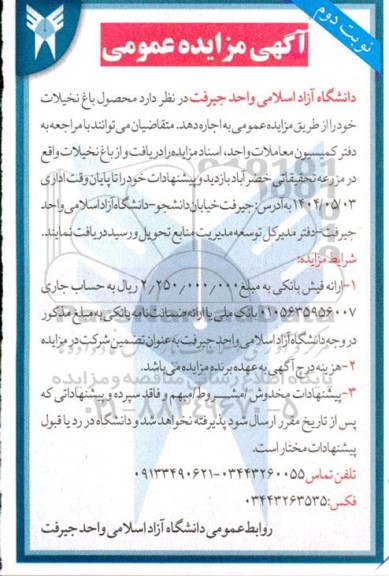 نوبت دوم
آگهی مزایده عمومی
دانشگاه آزاد اسلامی واحد جیرفت در نظر دارد محصول باغ نخیلات
خود را از طریق مزایده عمومی به اجاره دهد. متقاضیان می توانند با مراجعه به
دفتر کمیسیون معاملات واحد، اسناد مزایده را دریافت و از باغ نخیلات واقع
در مزرعه تحقیقاتی خضر آباد بازدید و پیشنهادات خود را تا پایان وقت اداری
۱۴۰۴/۰۵/۰۳ به آدرس: جیرفت خیابان دانشجو-دانشگاه آزاد اسلامی واحد
جیرفت-دفتر مدیر کل توسعه مدیریت منابع تحویل و رسید دریافت نمایند.
شرایط مزایده:
۱-ارائه فیش بانکی به مبلغ ۲/۲۵۰/۰۰۰/۰۰۰ ریال به حساب جاری
۰۱۰۵۶۳۵۹۵۶۰۰۷ بانک ملی یا ارائه ضمانت نامه بانکی به مبلغ مذکور
در وجه دانشگاه آزاد اسلامی واحد جیرفت به عنوان تضمین شرکت در مزایده
۲-هزینه درج آگهی به عهده برنده مزایده می باشد.
پایگاه اطلاع رسانی مناقصه و مزایده
۳-پیشنهادات مخدوش/مشروط/مبهم و فاقد سپرده و پیشنهاداتی که
۰۲۱-۸۸۳۴۹۶۷۰-۵
پس از تاریخ مقرر ارسال شود پذیرفته نخواهد شد و دانشگاه در رد یا قبول
پیشنهادات مختار است.
تلفن تماس ۰۳۴۴۳۲۶۰۰۵۵-۰۹۱۳۳۴۹۰۶۲۱
فکس: ۰۳۴۴۳۲۶۳۵۳۵
روابط عمومی دانشگاه آزاد اسلامی واحد جیرفت